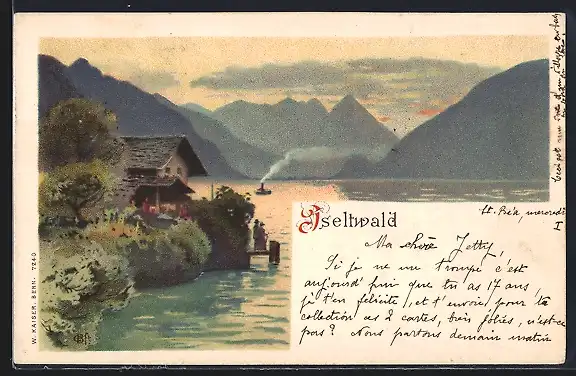 Iseltwald
mercredi
Ma chère Jetty,
Si je ne me trompe c'est
aujourd'hui que tu as 17 ans,
je t'en félicite, et t'envoie pour ta
collection ces 2 cartes, très jolies, n'est-ce
pas? Nous partons demain matin
W. KAISER, BERN. 7240